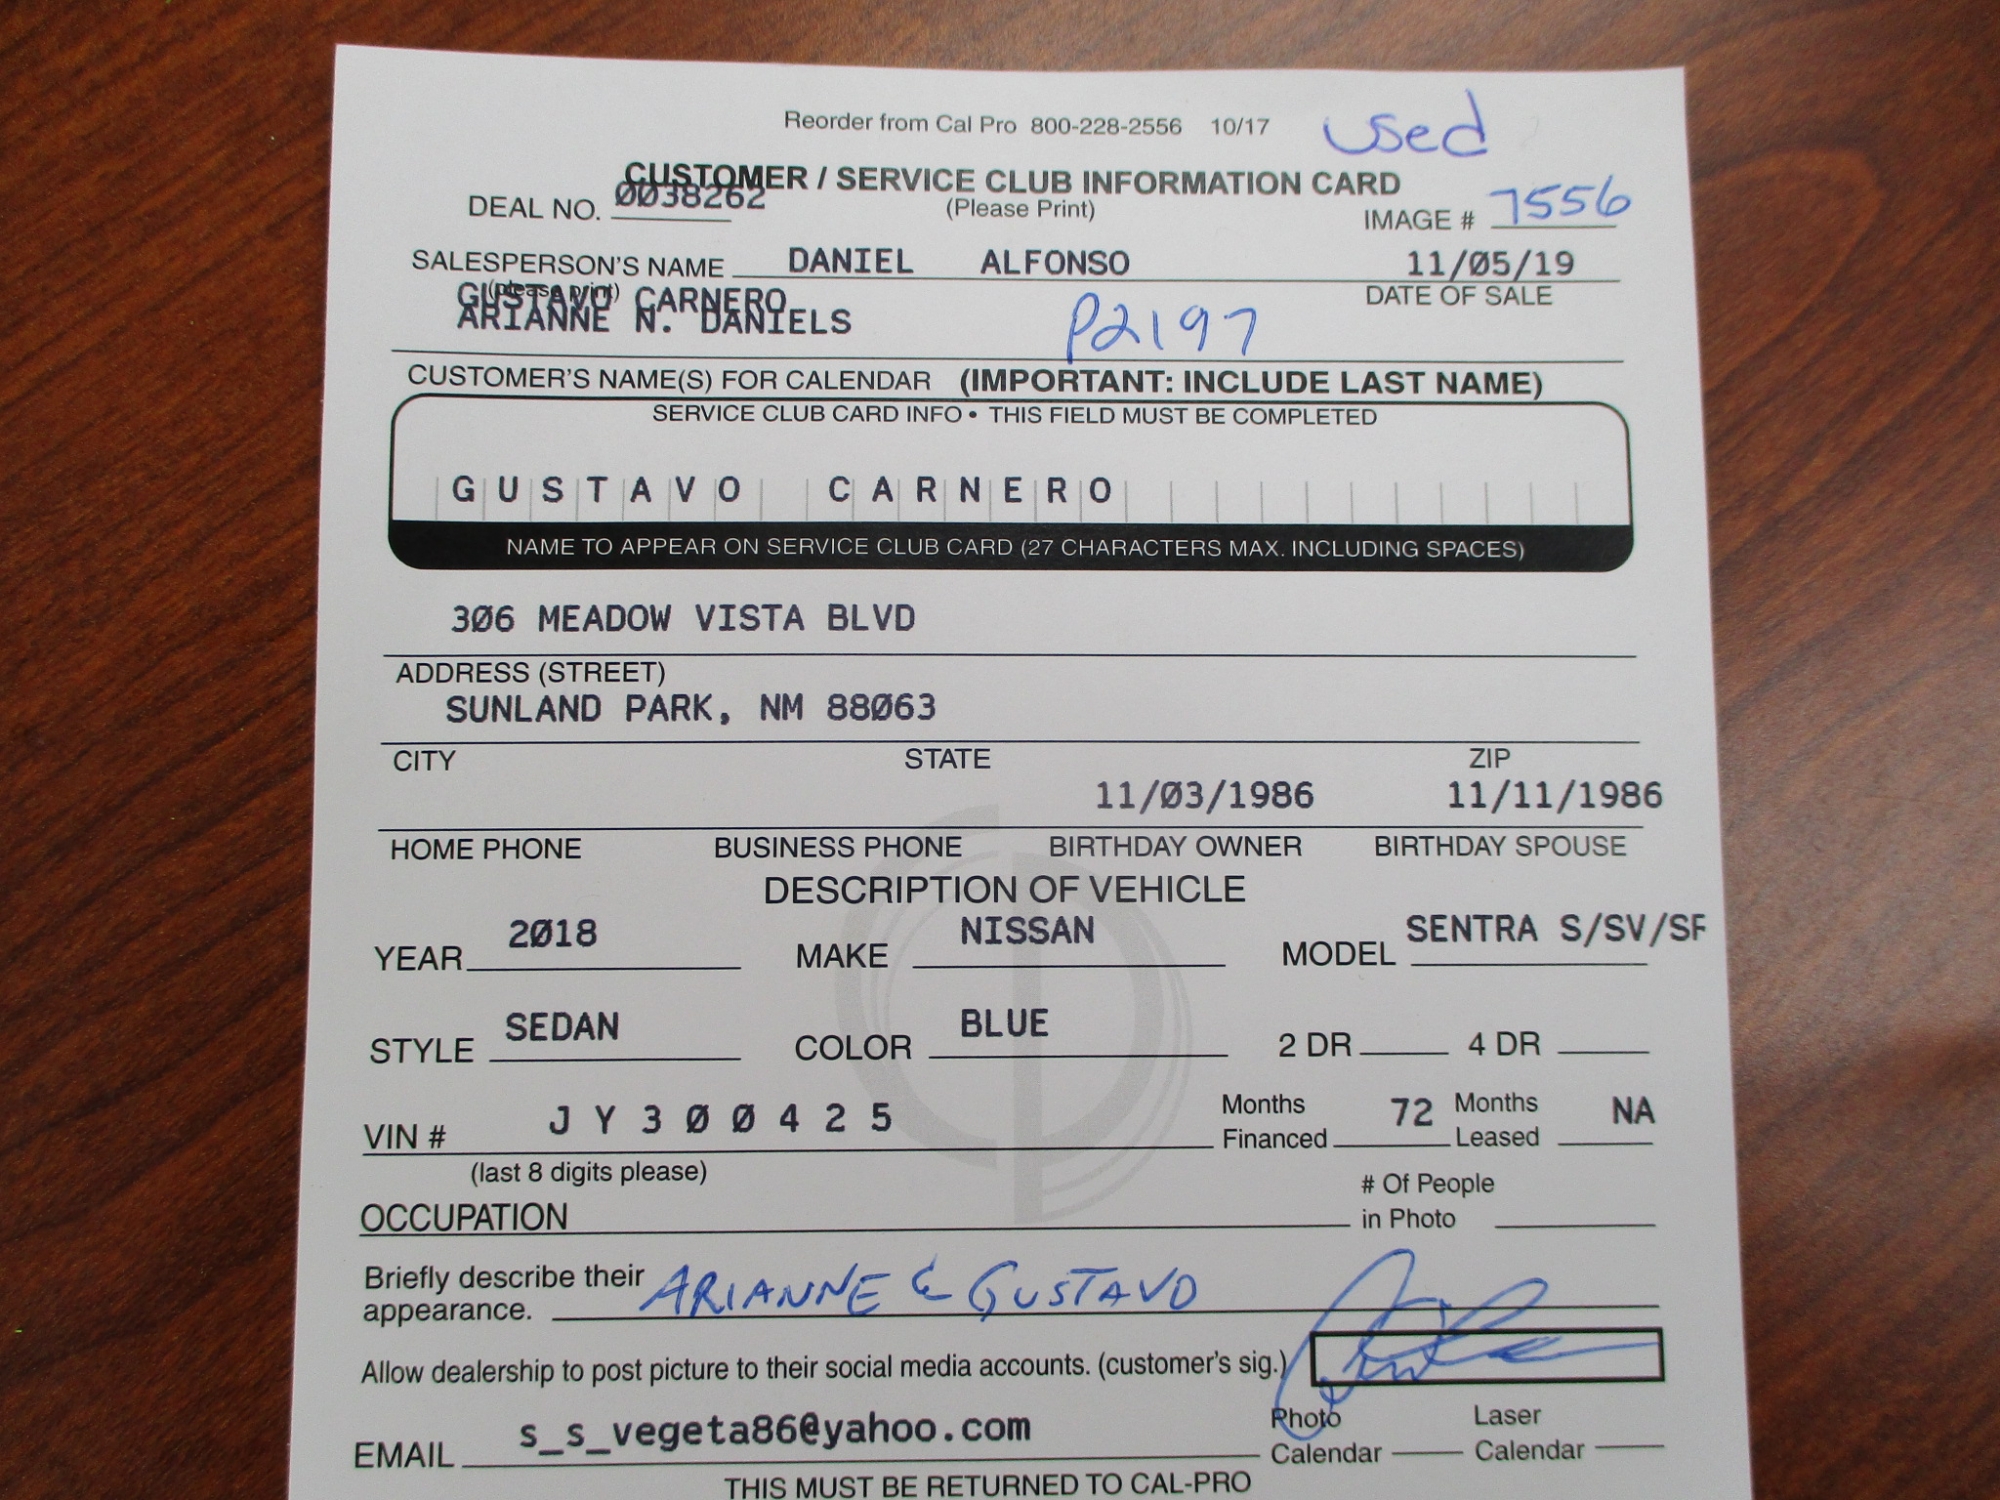 Reorder from Cal Pro 800-228-2556 10/17 used
CUSTOMER / SERVICE CLUB INFORMATION CARD
DEAL NO. 0038262 (Please Print) IMAGE # 7556
SALESPERSON'S NAME DANIEL ALFONSO 11/05/19
(please print) DATE OF SALE
GUSTAVO CARNERO
ARIANNE N. DANIELS P2197
CUSTOMER'S NAME(S) FOR CALENDAR (IMPORTANT: INCLUDE LAST NAME)
SERVICE CLUB CARD INFO • THIS FIELD MUST BE COMPLETED
GUSTAVO CARNERO
NAME TO APPEAR ON SERVICE CLUB CARD (27 CHARACTERS MAX. INCLUDING SPACES)
306 MEADOW VISTA BLVD
ADDRESS (STREET)
SUNLAND PARK, NM 88063
CITY STATE ZIP
11/03/1986 11/11/1986
HOME PHONE BUSINESS PHONE BIRTHDAY OWNER BIRTHDAY SPOUSE
DESCRIPTION OF VEHICLE
YEAR 2018 MAKE NISSAN MODEL SENTRA S/SV/SR
STYLE SEDAN COLOR BLUE 2 DR 4 DR
VIN # JY300425 Months Financed 72 Months Leased NA
(last 8 digits please)
OCCUPATION # Of People in Photo
Briefly describe their
appearance. ARIANNE & GUSTAVO
Allow dealership to post picture to their social media accounts. (customer's sig.)
EMAIL s_s_vegeta86@yahoo.com Photo Calendar Laser Calendar
THIS MUST BE RETURNED TO CAL-PRO